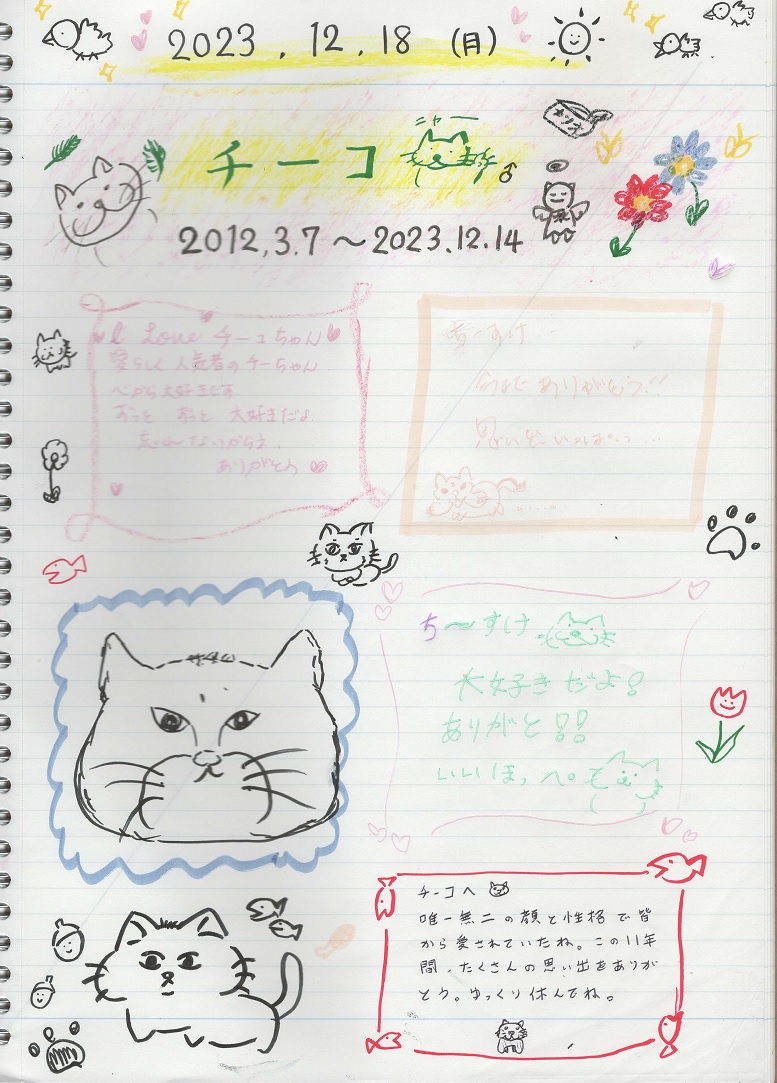 2023.12.18 (月)
ニャー
チーコ
♂
カツオ
2012.3.7〜2023.12.14
I Love チーコちゃん
愛らしく 人気者のチーちゃん
心から大好きです
ずっと ずっと 大好きだよ
忘れないからね
ありがとう
今まで ありがとう!!
思い出いっぱい…
ち〜すけ
大好きだよ!
ありがと!!
いいほっぺ。
チーコへ
唯一無二の顔と性格で皆
から愛されていたね。この11年
間、たくさんの思い出をありが
とう。ゆっくり休んでね。